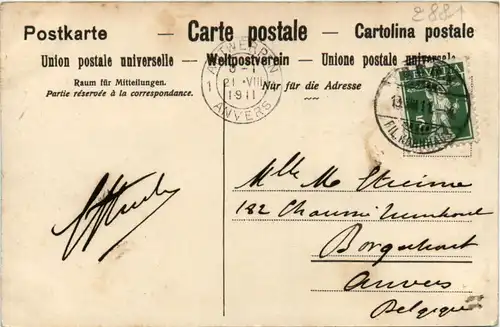 2881
Postkarte — Carte postale — Cartolina postale
Union postale universelle — Weltpostverein — Unione postale universale
Raum für Mitteilungen.
Partie réservée à la correspondance.
Nur für die Adresse
ANTWERPEN
1
21 VIII
1911
ANVERS
5
Mlle M
182 Chaussée
Borgerhout
Anvers
Belgique